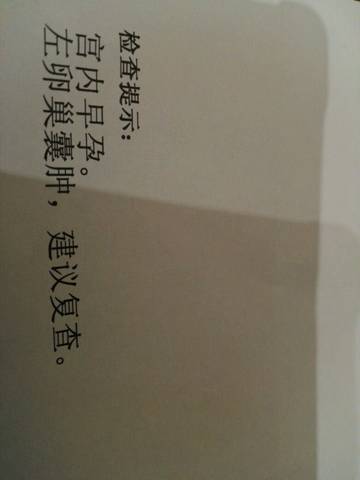 检查提示：
宫内早孕。
左卵巢囊肿，建议复查。